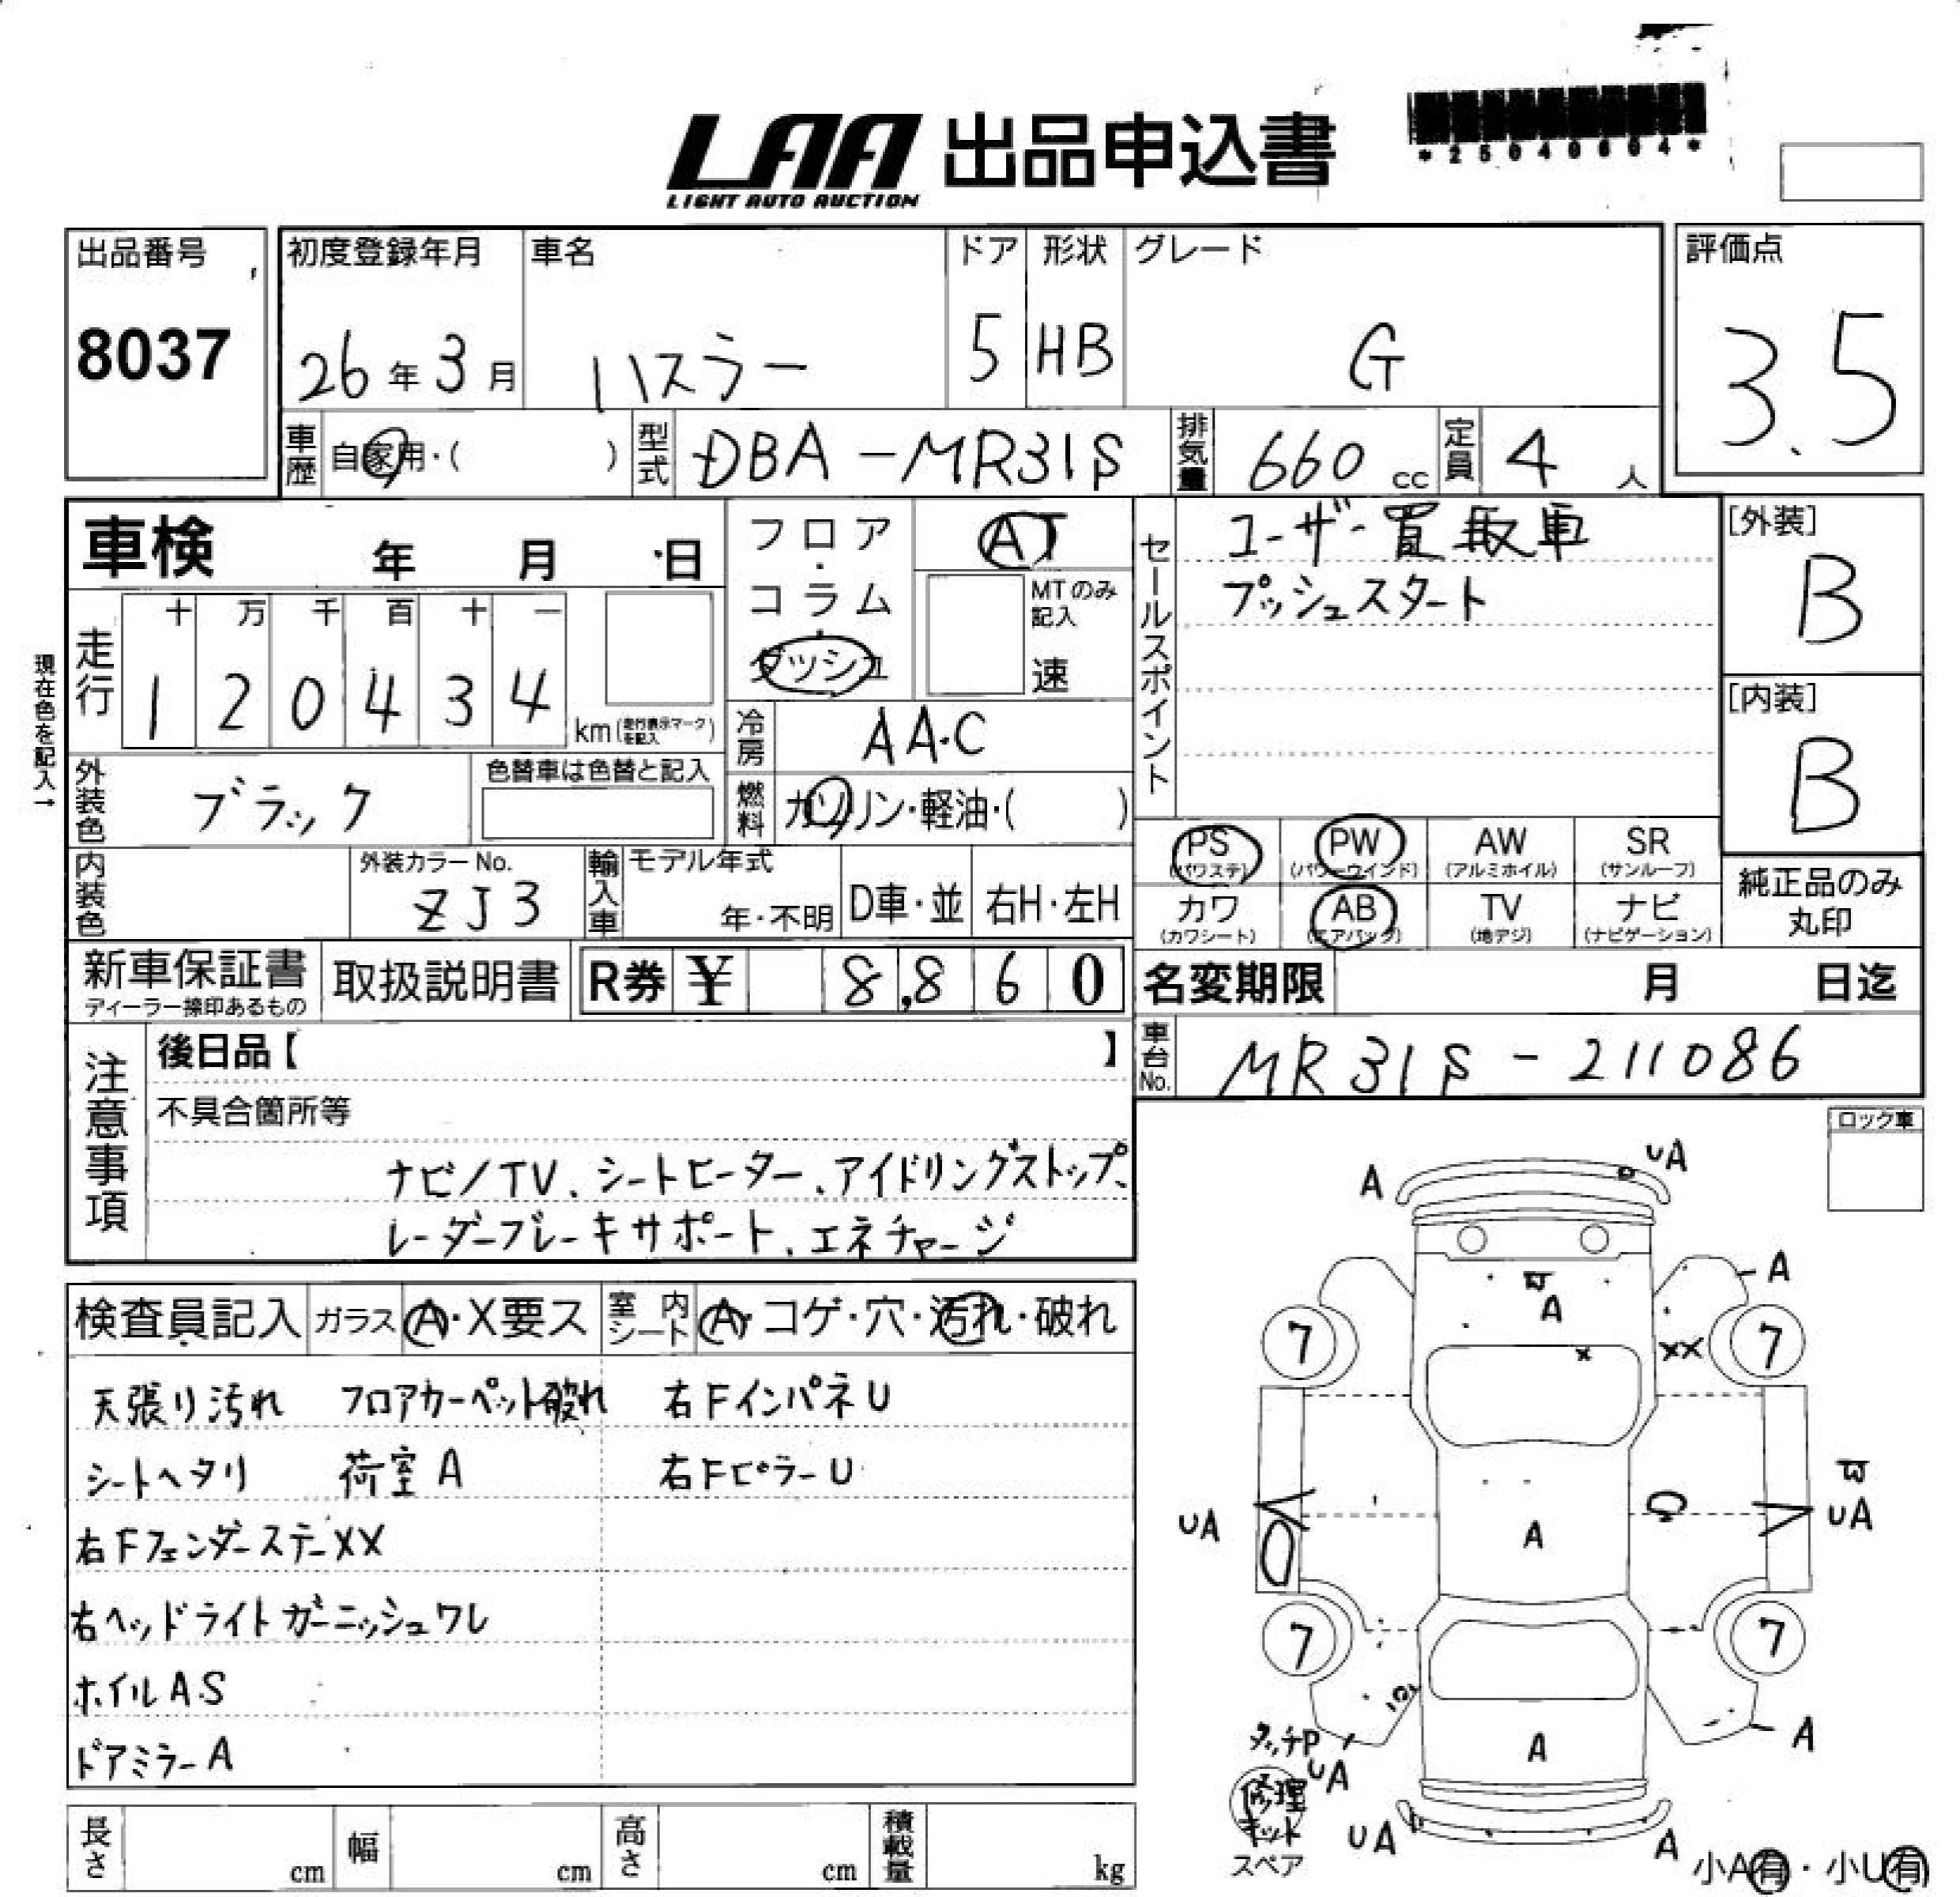 LAA 出品申込書
LIGHT AUTO AUCTION
*25040604*
出品番号
8037
初度登録年月
26年3月
車名
ハスラー
ドア
5
形状
HB
グレード
G
評価点
3.5
車歴
自家用・( )
型式
DBA-MR31S
排気量
660 cc
定員
4 人
車検 年 月 日
フロア・コラム・ダッシュ
AT
MTのみ記入
速
セールスポイント
ユーザー買取車
プッシュスタート
[外装]
B
[内装]
B
純正品のみ丸印
現在色を記入→
走行
十 万 千 百 十 一
1 2 0 4 3 4 km(走行表示マークを記入)
冷房
AA.C
燃料
ガソリン・軽油・( )
外装色
ブラック
色替車は色替と記入
内装色
外装カラーNo.
ZJ3
輸入車
モデル年式
年・不明
D車・並
右H・左H
PS (パワステ)
PW (パワーウインド)
AW (アルミホイル)
SR (サンルーフ)
カワ (カワシート)
AB (エアバック)
TV (地デジ)
ナビ (ナビゲーション)
新車保証書
ディーラー捺印あるもの
取扱説明書
R券 ¥ 8,860
名変期限 月 日迄
車台No.
MR31S-211086
注意事項
後日品【 】
不具合箇所等
ナビ/TV、シートヒーター、アイドリングストップ、
レーダーブレーキサポート、エネチャージ
ロック車
検査員記入
ガラス
A・X要ス
室内シート
A・コゲ・穴・汚れ・破れ
天張り汚れ フロアカーペット破れ 右FインパネU
シートヘタリ 荷室A 右FピラーU
右FフェンダーステーXX
右ヘッドライトガーニッシュワレ
ホイルA.S
ドアミラーA
A
UA
A
A
7
7
X
XX
UA
A
UA
7
7
A
A
タッチP
UA
修理キット
スペア
UA
A
小A有・小U有
長さ cm
幅 cm
高さ cm
積載量 kg